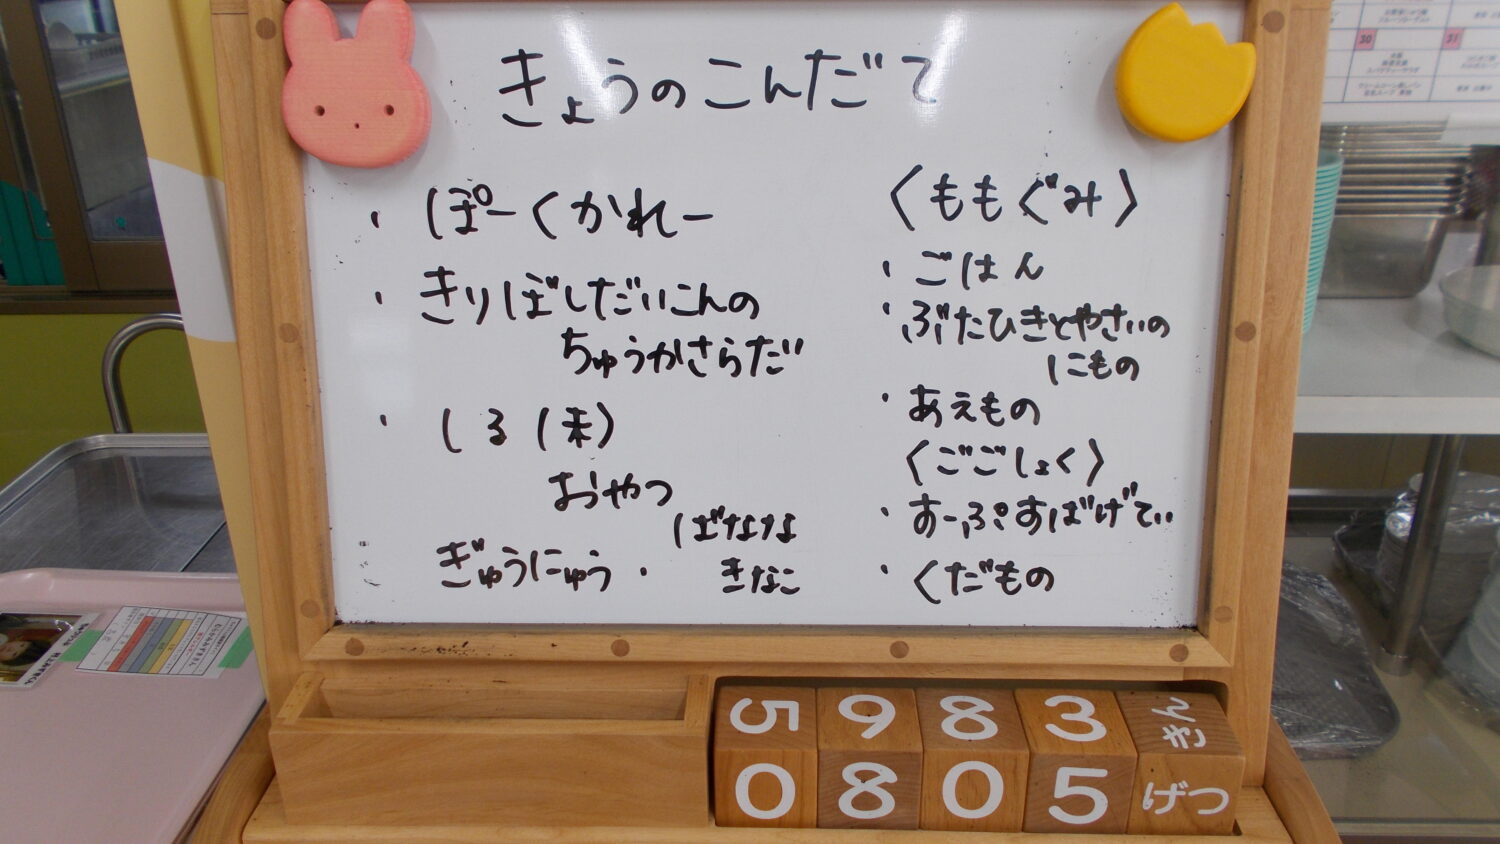 きょうのこんだて
・ぽーくかれー
・きりぼしだいこんの
ちゅうかさらだ
・しる(末)
おやつ
ぎゅうにゅう・
ばなな
きなこ
〈ももぐみ〉
・ごはん
・ぶたひきとやさいの
にもの
・あえもの
〈ごごしょく〉
・すーぷすぱげてぃ
・くだもの
5 9 8 3 きん
0 8 0 5 げつ
30
31